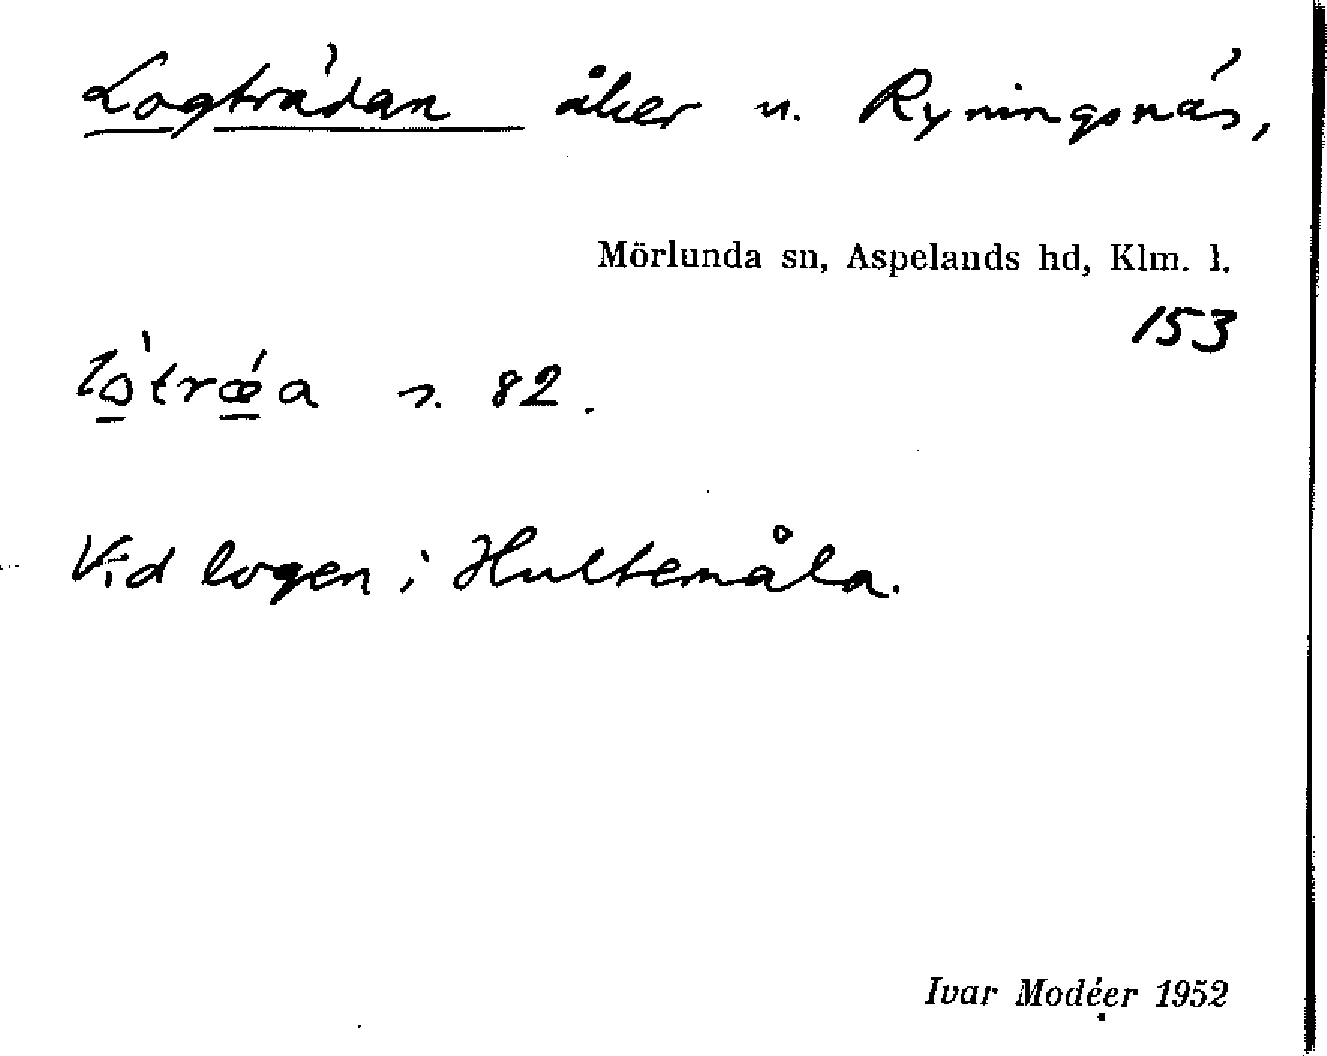 Logträdan åker u. Ryningsnäs,
Mörlunda sn, Aspelands hd, Klm. l.
153
lo̠̍trǽ̠a s. 82.
Vid logen i Hultemåla.
Ivar Modéer 1952